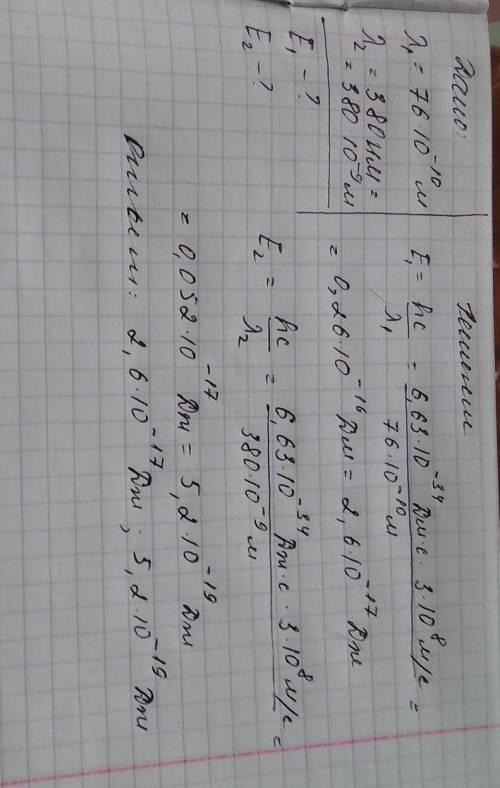 Дано:
λ₁ = 76·10⁻¹⁰ м
λ₂ = 380 нм =
= 380·10⁻⁹ м
E₁ - ?
E₂ - ?
Решение
E₁ = hc/λ₁ = 6,63·10⁻³⁴ Дж·с · 3·10⁸ м/с / 76·10⁻¹⁰ м =
= 0,26·10⁻¹⁶ Дж = 2,6·10⁻¹⁷ Дж
E₂ = hc/λ₂ = 6,63·10⁻³⁴ Дж·с · 3·10⁸ м/с / 380·10⁻⁹ м =
= 0,052·10⁻¹⁷ Дж = 5,2·10⁻¹⁹ Дж
Ответ: 2,6·10⁻¹⁷ Дж; 5,2·10⁻¹⁹ Дж